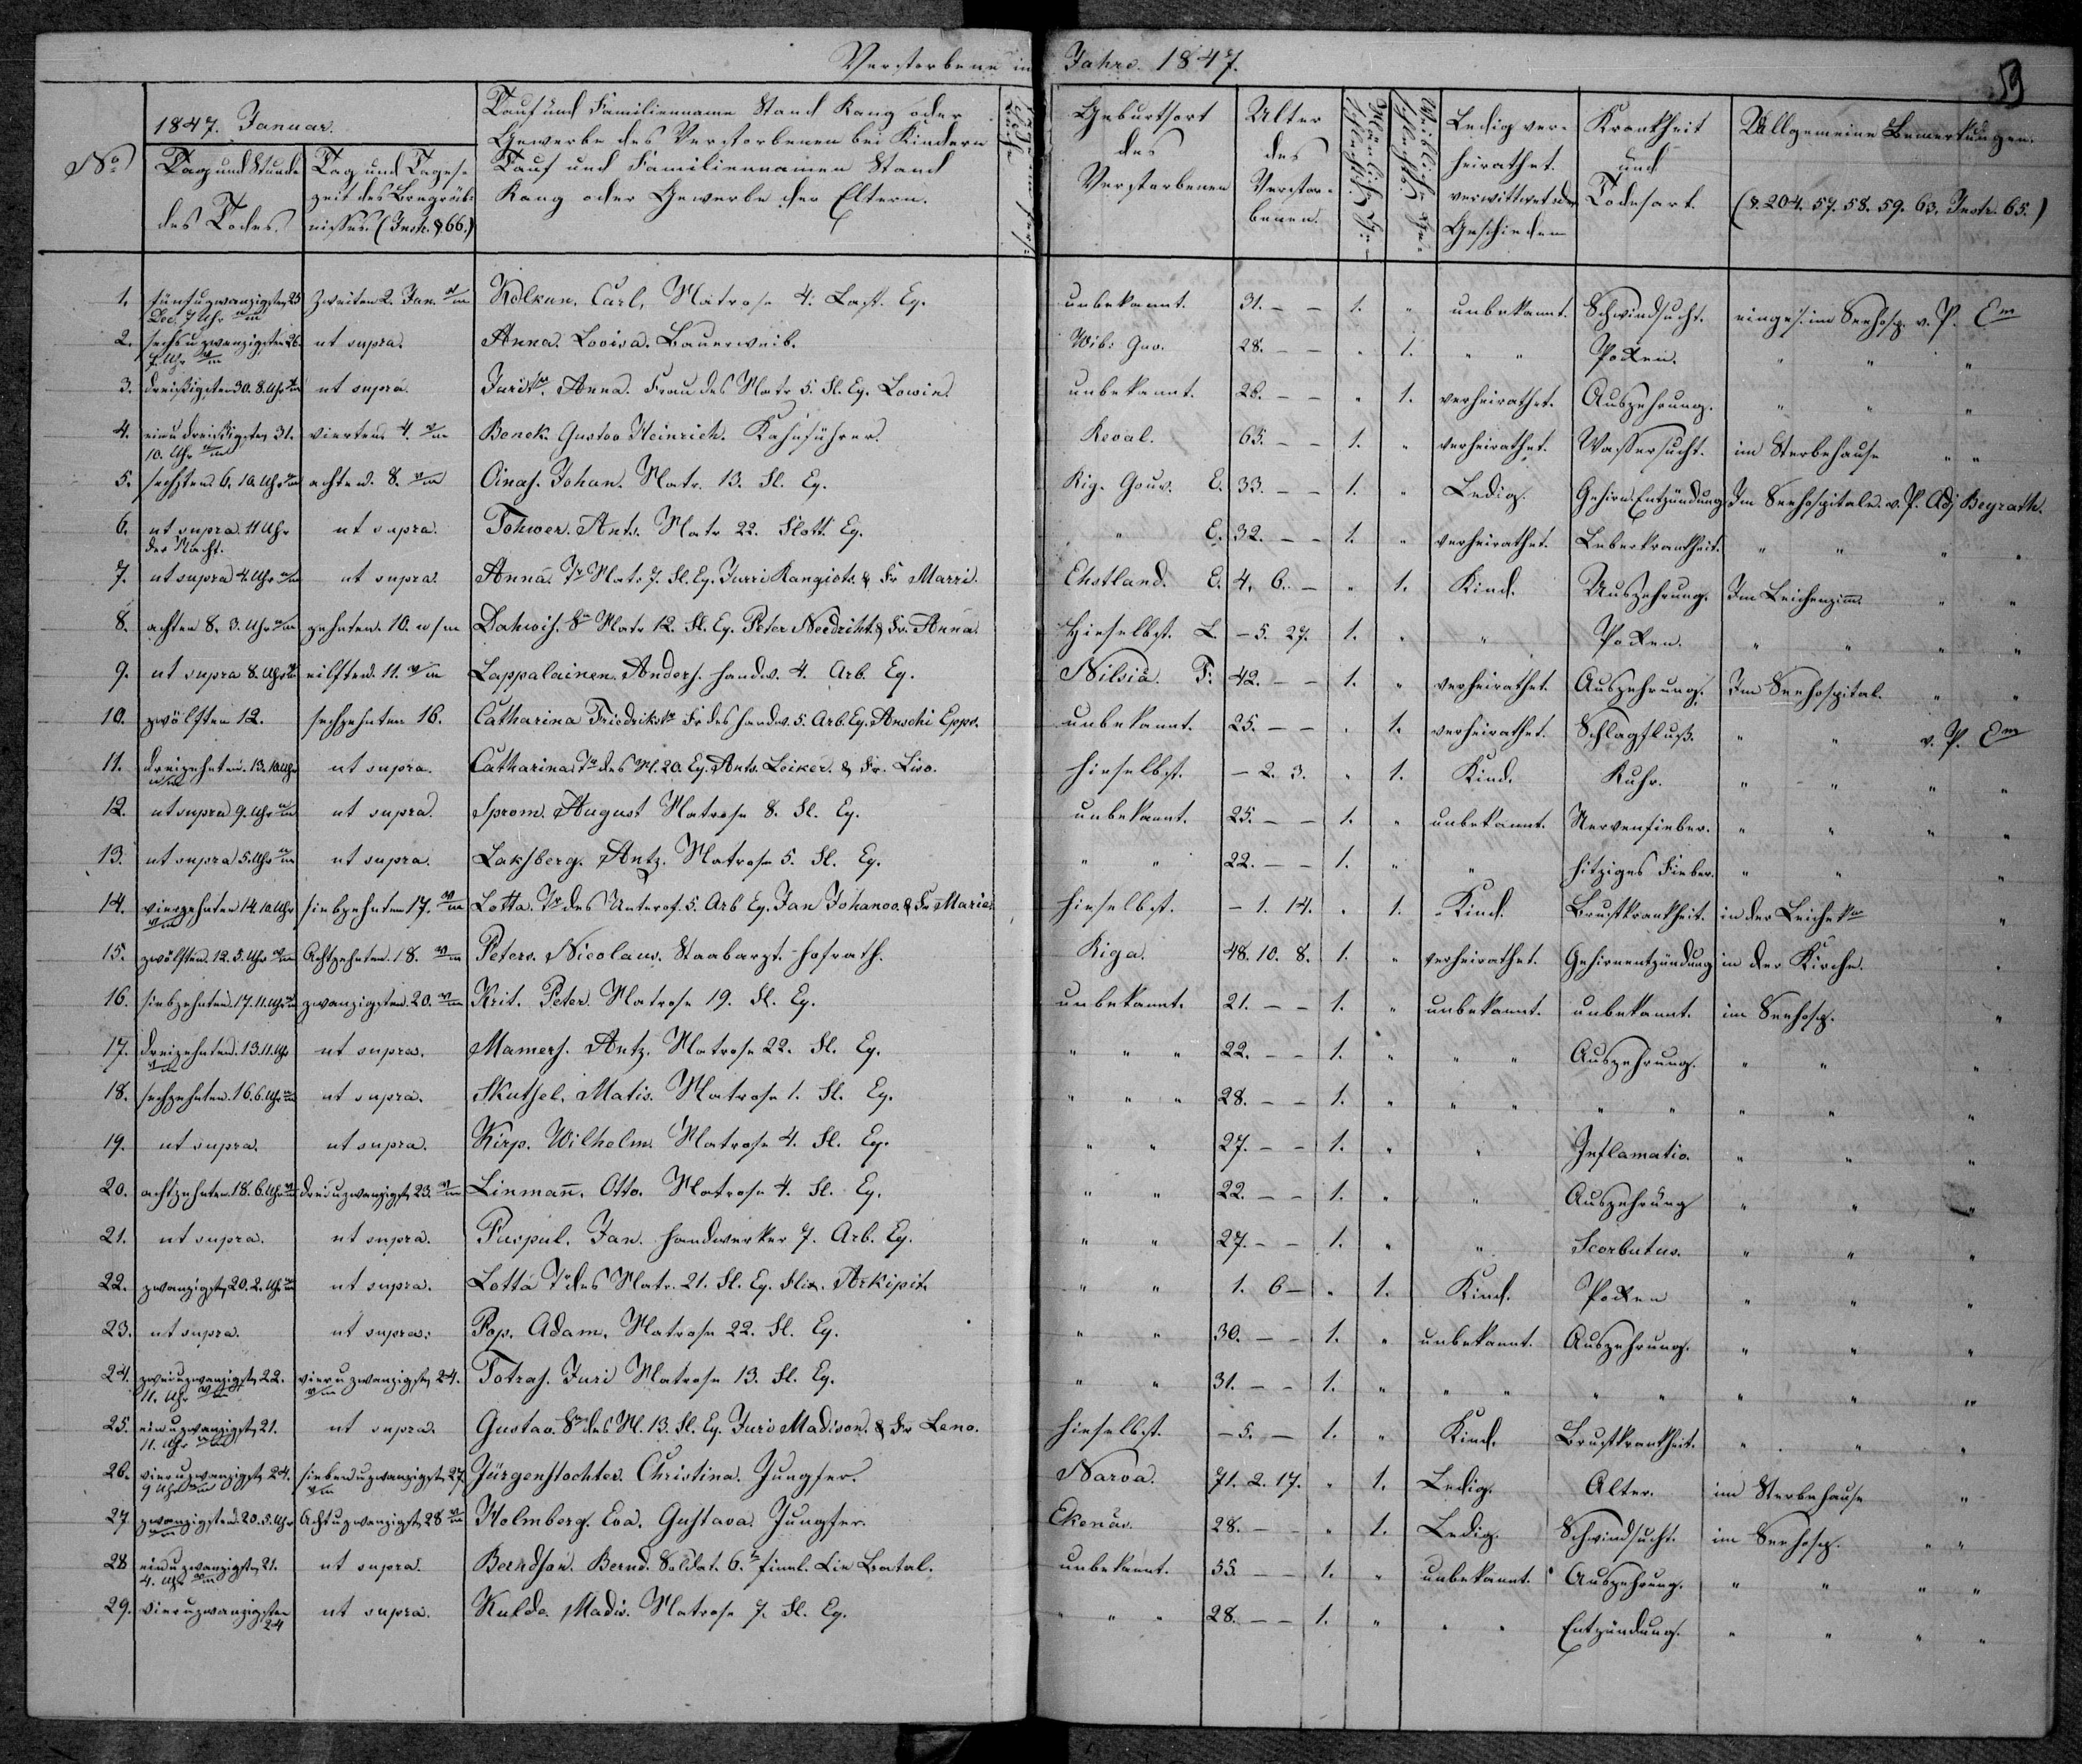 Verstorbene im Jahre 1847.
59
No
1847. Januar.
Tag und Stunde des Todes.
Tag und Tages-
zeit des Begräb-
nisses. (Instr. § 66.)
Tauf und Familienname Stand Rang oder
Gewerbe des Verstorbenen bei Kindern
Tauf und Familiennamen Stand
Rang oder Gewerbe der Eltern.
Geburtsort
des
Verstorbenen
Alter
des
Verstor-
benen.
Männliche Ge-
schlechts.
Weibliche Ge-
schlechts.
Ledig ver-
heirathet.
verwittwet oder
Geschieden
Krankheit
und
Todesart.
Allgemeine Bemerkungen.
(§. 204. 57. 58. 59. 63. Instr. 65.)
1. fünfuzwanzigsten 25 Dec. 7 Uhr zweiten 2. Jan. Kolkun. Carl, Matrose 4. Last. Eq. unbekannt. 31. – – 1. " unbekannt. Schwindsucht. einges. im Seehosp. v. P. Em
2. sechsuzwanzigsten 26. 7. Uhr ut supra. Anna. Lovisa. Bauerweib. Wib: Guv. 28. – – " 1. " " Pocken. " " "
3. dreißigsten 30. 8. Uhr ut supra. Juristr. Anna. Frau des Matr 5. Fl. Eq. Lowin. unbekannt. 26. – – " 1. verheirathet. Auszehrung. " " "
4. einudreißigsten 31. 10. Uhr vierten 4. Benek. Gustav Heinrich. Kahnführer. Reval. 65. – – 1. " verheirathet. Wassersucht. im Sterbehause " "
5. sechsten 6. 10. Uhr achten 8. Oinas. Johan. Matr. 13. Fl. Eq. Rig. Gouv. E. 33. – – 1. " Ledig. Gehirn Entzündung Im Seehospitale v. P. Adj Beyrath.
6. ut supra 11 Uhr der Nacht. ut supra. Tohwer. Ants. Matr 22. Flott. Eq. " E. 32. – – 1. " verheirathet. Leberkrankheit. " " " "
7. ut supra 4. Uhr ut supra. Anna. Tr Matr 7. Fl. Eq. Jurri Kangiots. & Fr Marri. Ehstland. E. 4. 6. – " 1. Kind. Auszehrung. Im Leichenzim. " "
8. achten 8. 3. Uhr zehnten. 10. Dahwis. Sn Matr 12. Fl. Eq. Peter Needriht. & Fr. Anna. Hieselbst. L. – 5. 27. 1. " " Pocken. " " " "
9. ut supra 8. Uhr eilften. 11. Lappalainen. Anders. Handw. 4. Arb. Eq. Nilsiä. F. 42. – – 1. " verheirathet. Auszehrung. Im Seehospital. " "
10. zwölften 12. sechzehnten 16. Catharina Friedrikstr Fr des Handw. 5. Arb. Eq. Anschi Eppo. unbekannt. 25. – – " 1. verheirathet. Schlagfluß. " " v. P. Em
11. dreizehnten. 13. 10 Uhr ut supra. Catharina. Tr des M. 20. Eq. Ants. Leiker. & Fr. Liso. hieselbst. – 2. 3. " 1. Kind. Ruhr. " " " "
12. ut supra 9. Uhr ut supra. Sprom. August Matrose 8. Fl. Eq. unbekannt. 25. – – 1. " unbekannt. Nervenfieber. " " " "
13. ut supra 5. Uhr ut supra. Laksberg. Antz. Matrose 5. Fl. Eq. " " 22. – – 1. " " hitziges Fieber. " " "
14. vierzehnten 14. 10. Uhr siebzehnten 17. Lotta. Tr des Unterof. 5. Arb Eq. Jan Johanoo. & Fr Marie. hieselbst. – 1. 14. " 1. Kind. Brustkrankheit. in der Leichek "
15. zwölften. 12. 5. Uhr Achtzehnten. 18. Peters. Nicolaus. Staabarzt. Hofrath. Riga. 48. 10. 8. 1. " verheirathet. Gehirnentzündung in der Kirche. "
16. siebzehnten. 17. 11. Uhr zwanzigsten 20. Krit. Peter. Matrose 19. Fl. Eq. unbekannt. 21. – – 1. " unbekannt. unbekannt. im Seehosp. "
17. dreizehnten. 13. 11. Uhr ut supra. Mamers. Antz. Matrose 22. Fl. Eq. " " " 22. – – 1. " " " Auszehrung. " " "
18. sechzehnten. 16. 6. Uhr ut supra. Skutsel. Matis. Matrose 1. Fl. Eq. " " " 28. – – 1. " " " " " " " "
19. ut supra. ut supra. Kirp. Wilhelm. Matrose 4. Fl. Eq. " " 27. – – 1. " " Inflamatio. " " "
20. achtzehnten. 18. 6. Uhr dreiuzwanzigst. 23. Linmann. Otto. Matrose 4. Fl. Eq. " " 22. – – 1. " " Auszehrung " " "
21. ut supra. ut supra. Puspul. Jan. Handwerker 7. Arb. Eq. " " 27. – – 1. " " Scorbutus. " " "
22. zwanzigst. 20. 2. Uhr ut supra. Lotta Tr des Matr. 21. Fl. Eq. Flix. Arkipit. " " 1. 6 – " 1. Kind. Pocken " " "
23. ut supra. ut supra. Pop. Adam. Matrose 22. Fl. Eq. " " 30. – – 1. " unbekannt. Auszehrung. " " "
24. zweiuzwanzigst. 22. 11. Uhr vieruzwanzigst. 24. Totras. Juri Matrose 13. Fl. Eq. " " 31. – – 1. " " " " " " " "
25. einuzwanzigst. 21. 11. Uhr ut supra. Gustav. Sn des M. 13. Fl. Eq. Juri Madison. & Fr Leno. hieselbst. – 5. – 1. " Kind. Brustkrankheit. " " "
26. vieruzwanzigst. 24. 9 Uhr siebenuzwanzigst. 27. Jürgenstochter. Christina. Jungfer. Narva. 71. 2. 17. " 1. Ledig. Alter. im Sterbehause "
27 zwanzigsten. 20. 5. Uhr Achtuzwanzigst. 28 Holmberg. Eva. Gustava. Jungfer. Ekenäs. 28. – – " 1. Ledig. Schwindsucht. im Seehosp. " "
28 einuzwanzigsten 21. 4. Uhr ut supra. Berndson. Bernd. Soldat. 6. finnl. Lin Batal. unbekannt. 55. – – 1. " unbekannt. Auszehrung. " " " "
29. vieruzwanzigsten 24 ut supra. Kulde. Madis. Matrose 7. Fl. Eq. " " " 28. – – 1. " " " Entzündung. " " " "